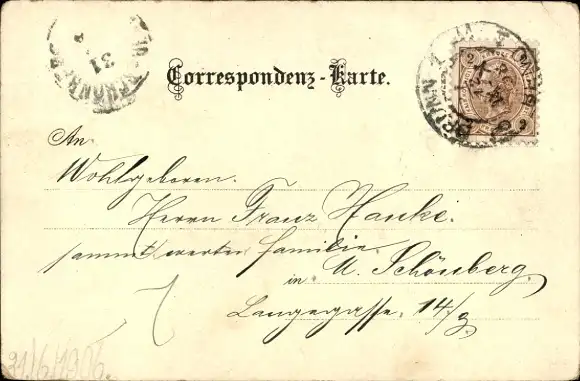 Correspondenz-Karte.
An
Wohlgeboren.
Herrn Franz Hanke.
sammt werter Familie
in M. Schönberg.
Langegasse. 14/
31
BRÜNN
2